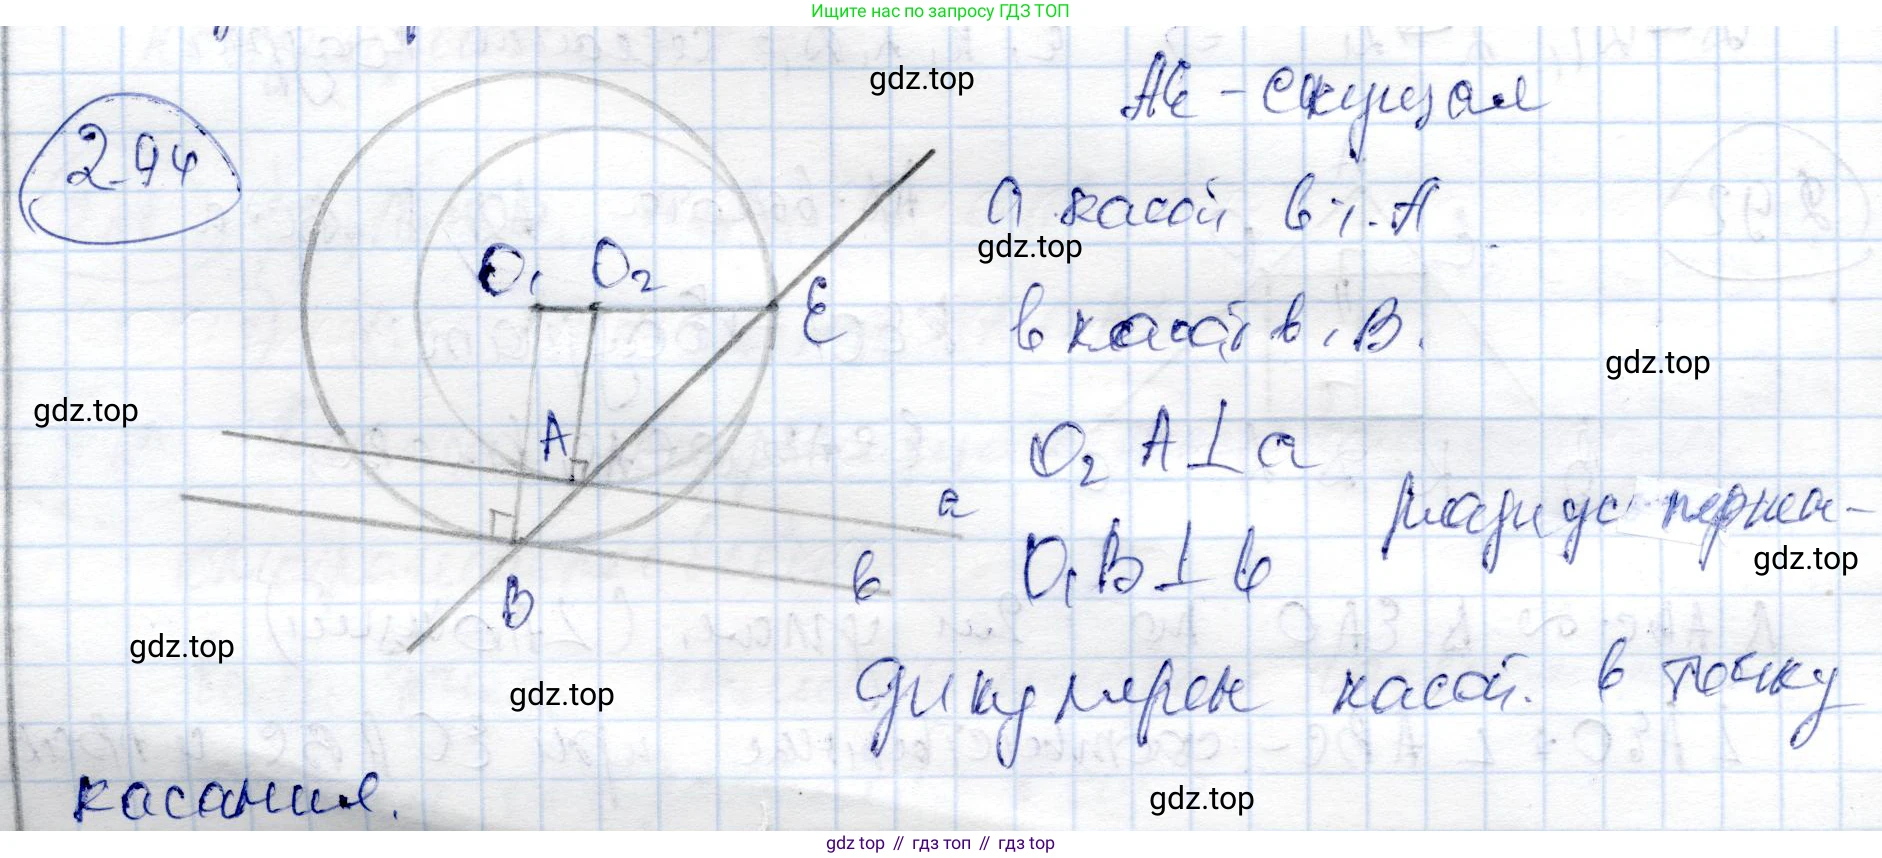 Ищите нас по запросу ГДЗ ТОП
2.94
AE - секущая
gdz.top
a касат. в т. A
gdz.top
O₁ O₂ E
в касат. в т. B.
gdz.top
gdz.top
A
O₂A⊥a
a
радиус перпен-
gdz.top
в
O₁B⊥в
B
gdz.top
дикулярен касат. в точку
gdz.top
касания.
gdz.top
gdz.top // гдз топ // гдз top